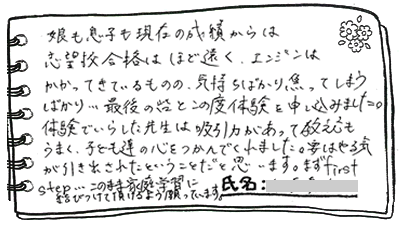 娘も息子も現在の成績からは
志望校合格はほど遠く、エンジンは
かかってきているものの、気持ちばかり焦ってしまう
ばかり…最後の砦とこの度体験を申し込みました。
体験でいらした先生は吸引力があって教え方も
うまく、子ども達の心をつかんでくれました。要はやる気
が引き出されたということだと思います。まずfirst
step…このまま家庭学習に
結びつけて頂けるよう願っています。
氏名: